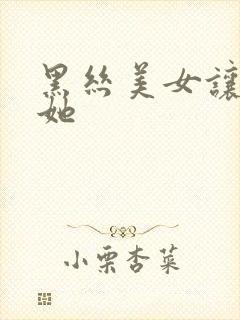 黑絲美女讓
她
小栗杏菜